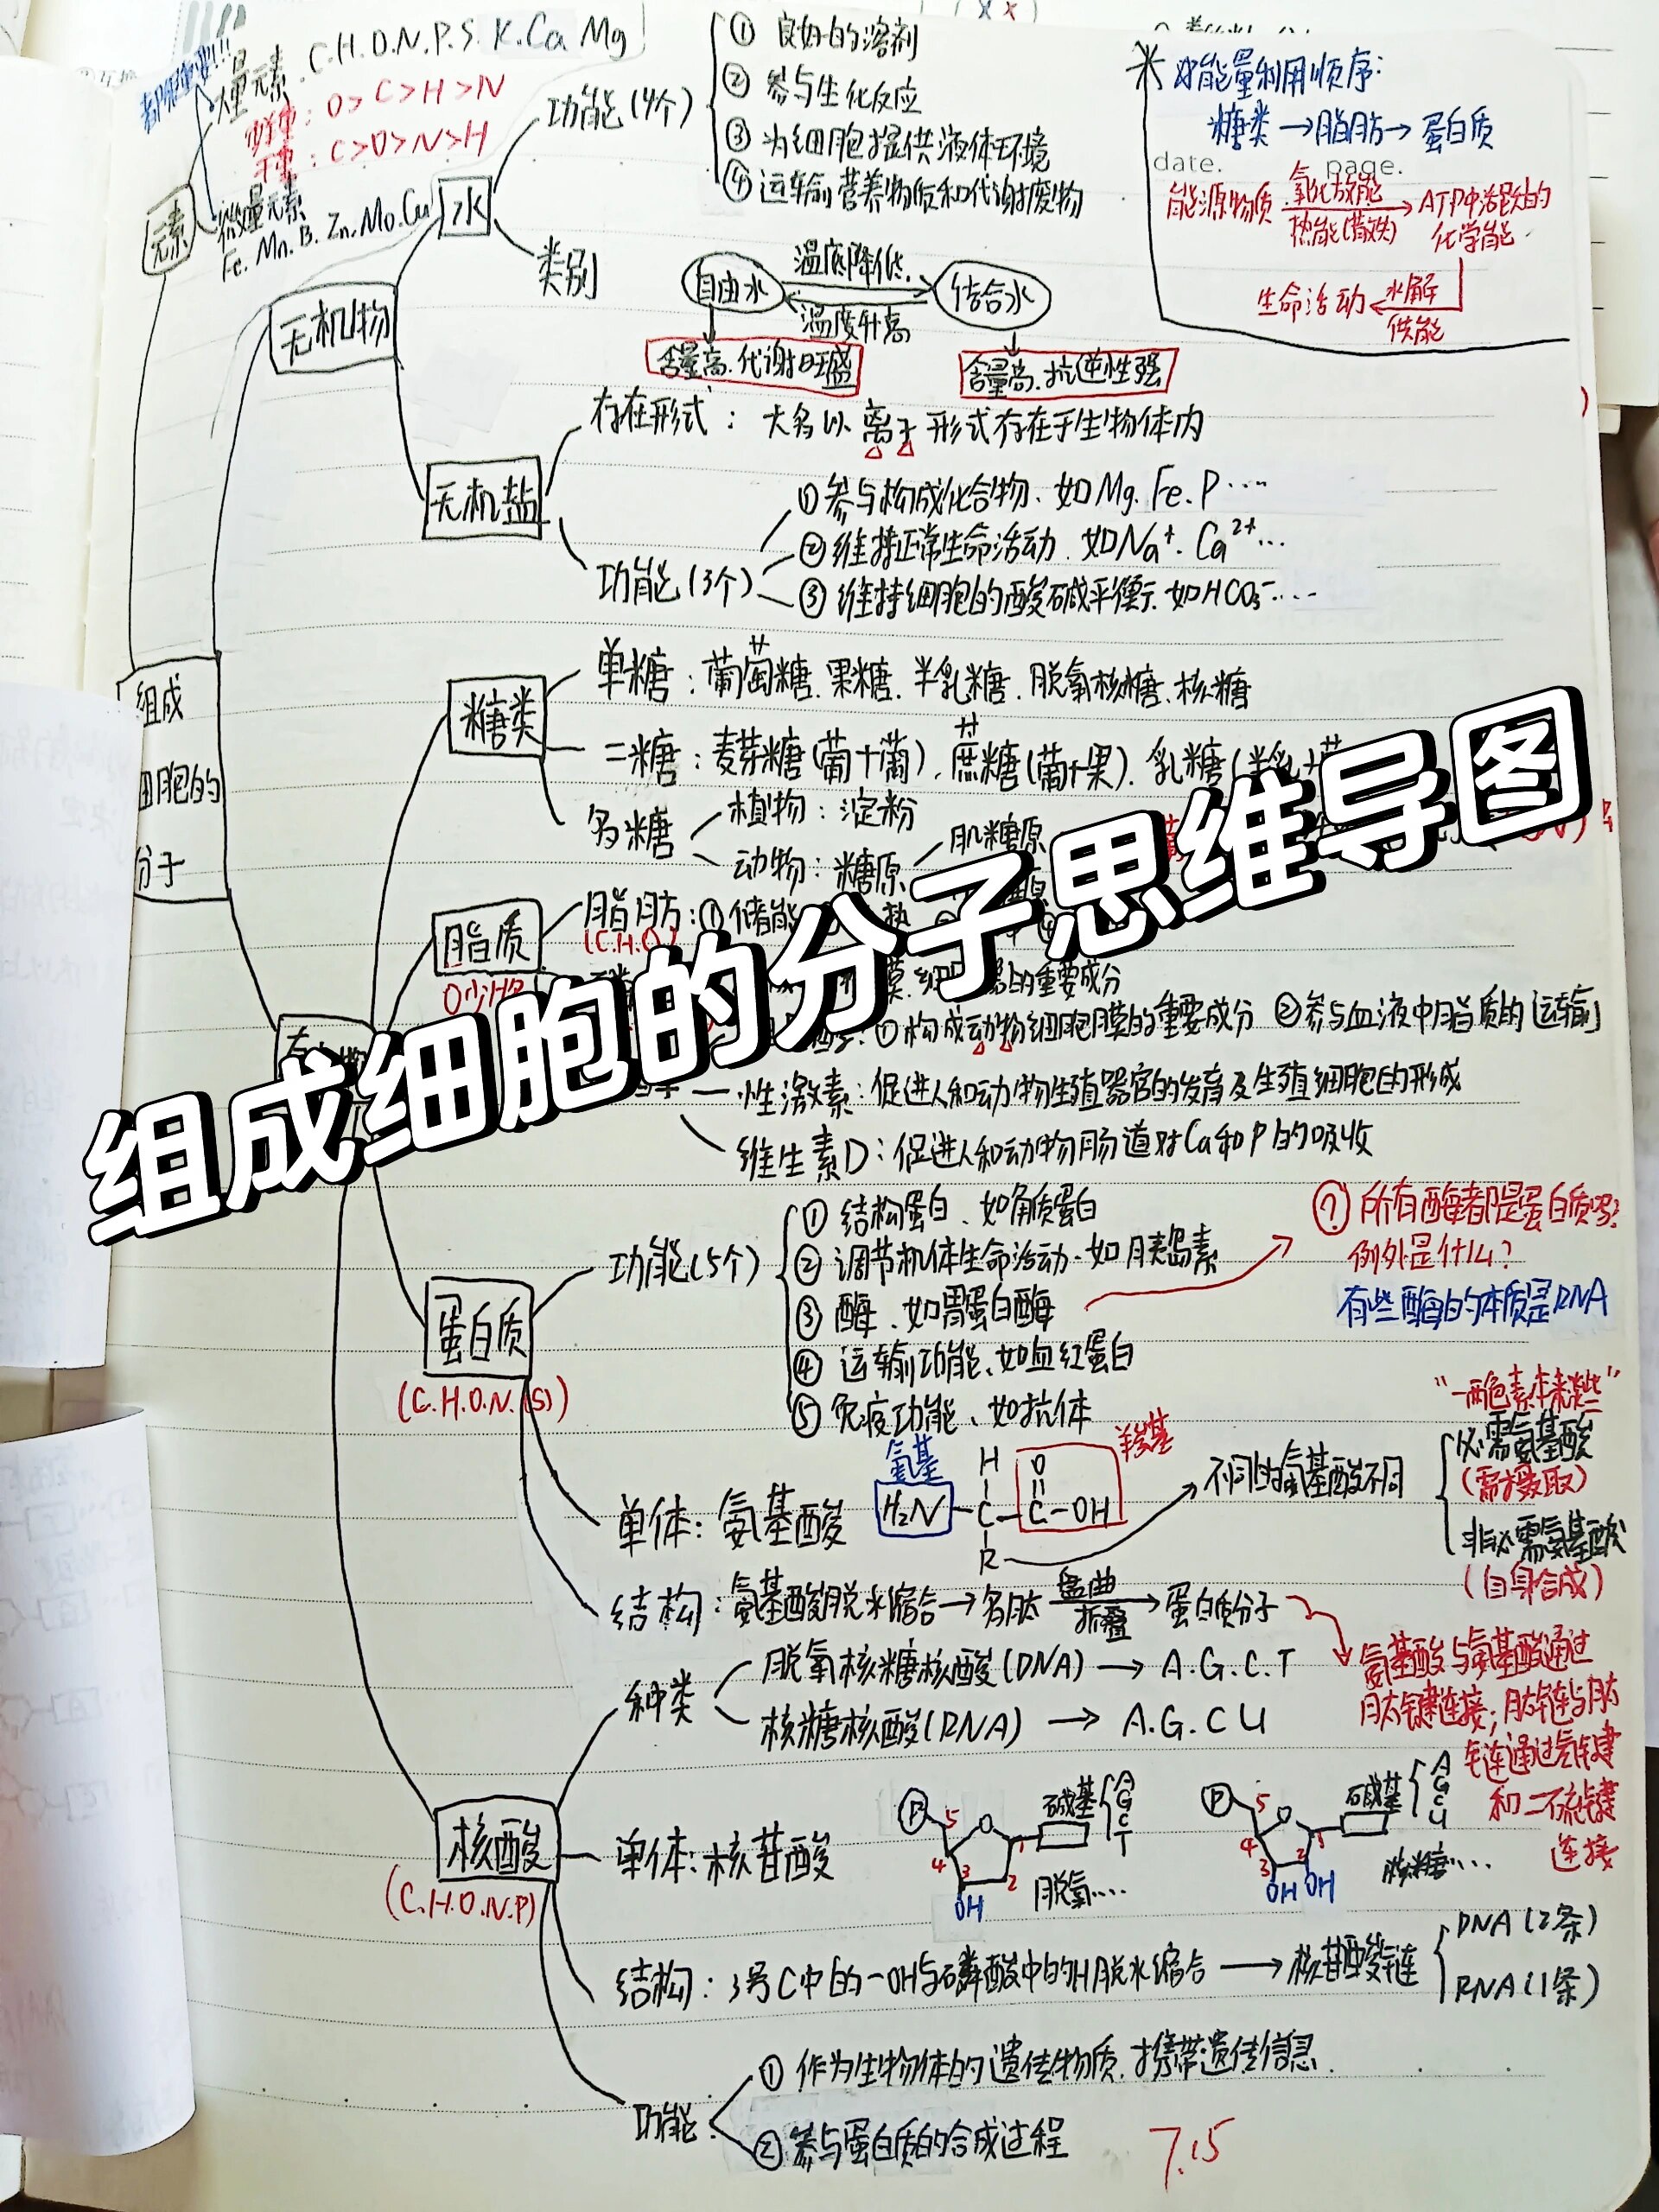 组成细胞的分子思维导图
组成
细胞的
分子
元素
大量元素 C.H.O.N.P.S.K.Ca Mg
鲜重：O>C>H>N
干重：C>O>N>H
微量元素
Fe.Mn.B.Zn.Mo.Cu
无机物
水
功能(4个)
① 良好的溶剂
② 参与生化反应
③ 为细胞提供液体环境
④ 运输营养物质和代谢废物
类别
自由水
温度降低
温度升高
结合水
含量高.代谢旺盛
含量高.抗逆性强
能量利用顺序：
糖类→脂肪→蛋白质
date. page.
能源物质 氧化放能 → ATP中活跃的
热能(散失) 化学能
生命活动 ← 水解
供能
无机盐
存在形式：大多以离子形式存在于生物体内
功能(3个)
① 参与构成化合物、如Mg.Fe.P····
② 维持正常生命活动.如Na⁺.Ca²⁺···
③ 维持细胞的酸碱平衡.如HCO₃⁻····
糖类
单糖：葡萄糖.果糖.半乳糖.脱氧核糖.核糖
二糖：麦芽糖(葡+葡).蔗糖(葡+果).乳糖(半乳+
多糖
植物：淀粉
动物：糖原
肌糖原
脂质
脂肪：①储能
(C.H.O)
的重要成分
①构成动物细胞膜的重要成分 ②参与血液中脂质的运输
性激素：促进人和动物生殖器官的发育及生殖细胞的形成
维生素D：促进人和动物肠道对Ca和P的吸收
蛋白质
(C.H.O.N.(S))
功能(5个)
① 结构蛋白、如角质蛋白
② 调节机体生命活动.如胰岛素
③ 酶、如胃蛋白酶
④ 运输功能、如血红蛋白
⑤ 免疫功能、如抗体
? 所有酶都是蛋白质吗?
例外是什么?
有些酶的本质是RNA
单体：氨基酸
氨基
H₂N
H
C
R
O
C-OH
羧基
不同的氨基酸不同
必需氨基酸
(需摄取)
非必需氨基酸
(自身合成)
结构：氨基酸脱水缩合→多肽 盘曲 折叠 →蛋白质分子
氨基酸与氨基酸通过
肽键连接；肽链与肽
链通过氢键
和二硫键
连接
核酸
(C.H.O.N.P)
种类
脱氧核糖核酸(DNA) → A.G.C.T
核糖核酸(RNA) → A.G.C U
单体：核苷酸
P 5 O 4 3 2 1 碱基 A G C T
OH 脱氧····
P 5 O 4 3 2 1 碱基 A G C U
OH OH 核糖····
结构：3号C中的-OH与磷酸中的H脱水缩合 → 核苷酸链
DNA(2条)
RNA(1条)
功能
① 作为生物体的遗传物质.携带遗传信息
② 参与蛋白质的合成过程
7.15